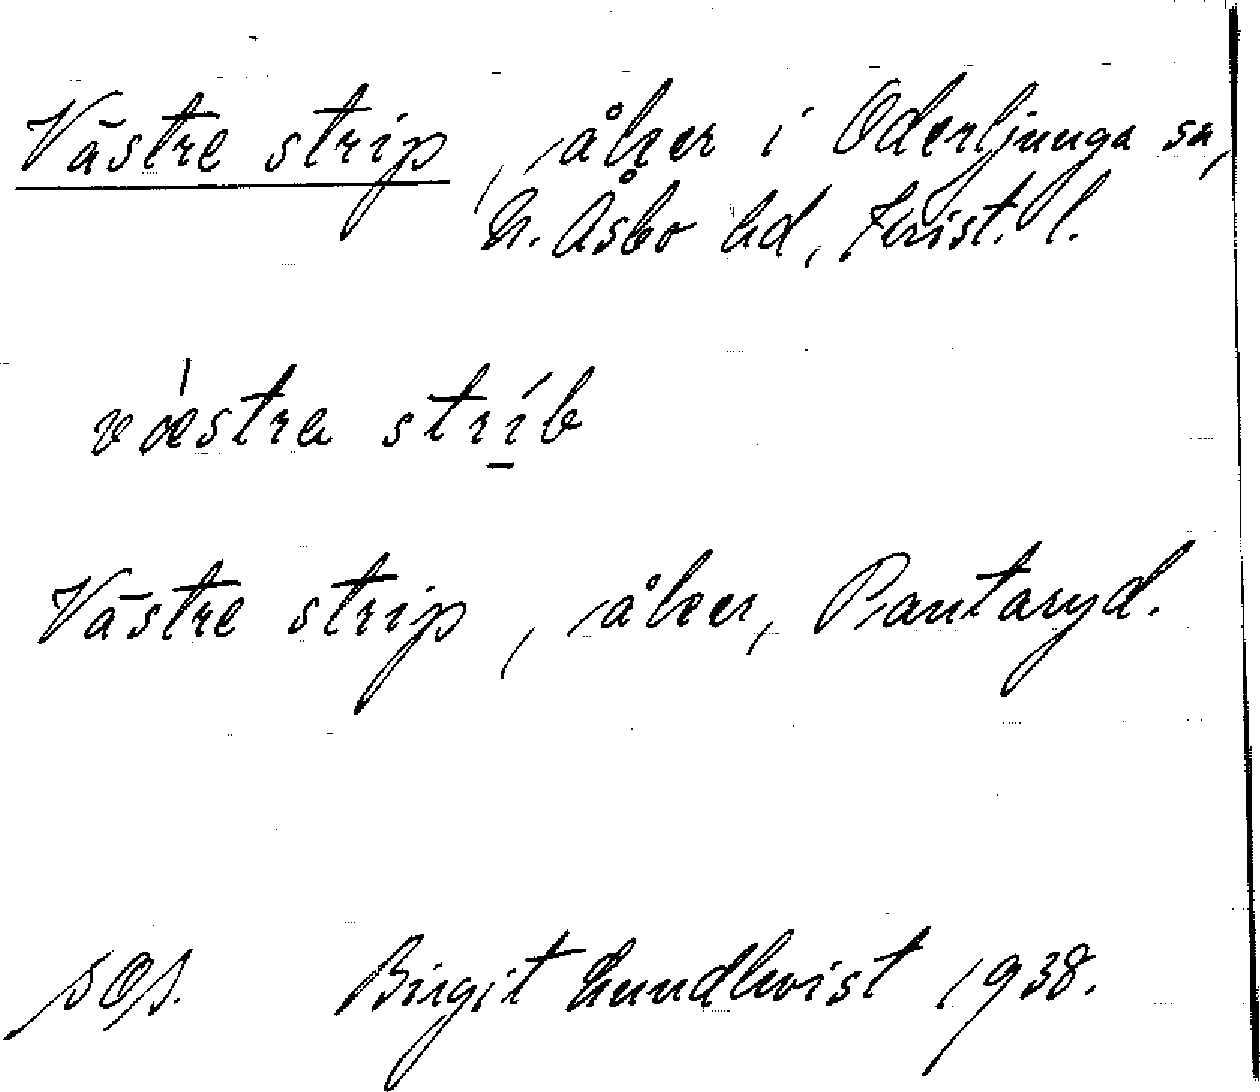 Västre strip, åker i Oderljunga sn,
N. Åsbo hd, Krist. l.
væstra strib
Västre strip, åker, Pantaryd.
Birgit Lundkvist 1938.